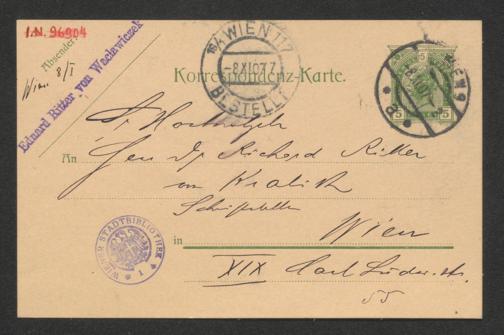 I.N. 96904
Absender:
Eduard Ritter von Waclawiczek
Wien 8/I
18/1 WIEN 117
-8.XI.07.7
BESTELLT
Korrespondenz-Karte.
5 5
WIEN 9
Sr Hochwohlgeb
An Herrn Dr Richard Ritter
von Kralik
Schriftsteller
in Wien
XIX Karl Ludwigstr.
55
WIENER STADTBIBLIOTHEK